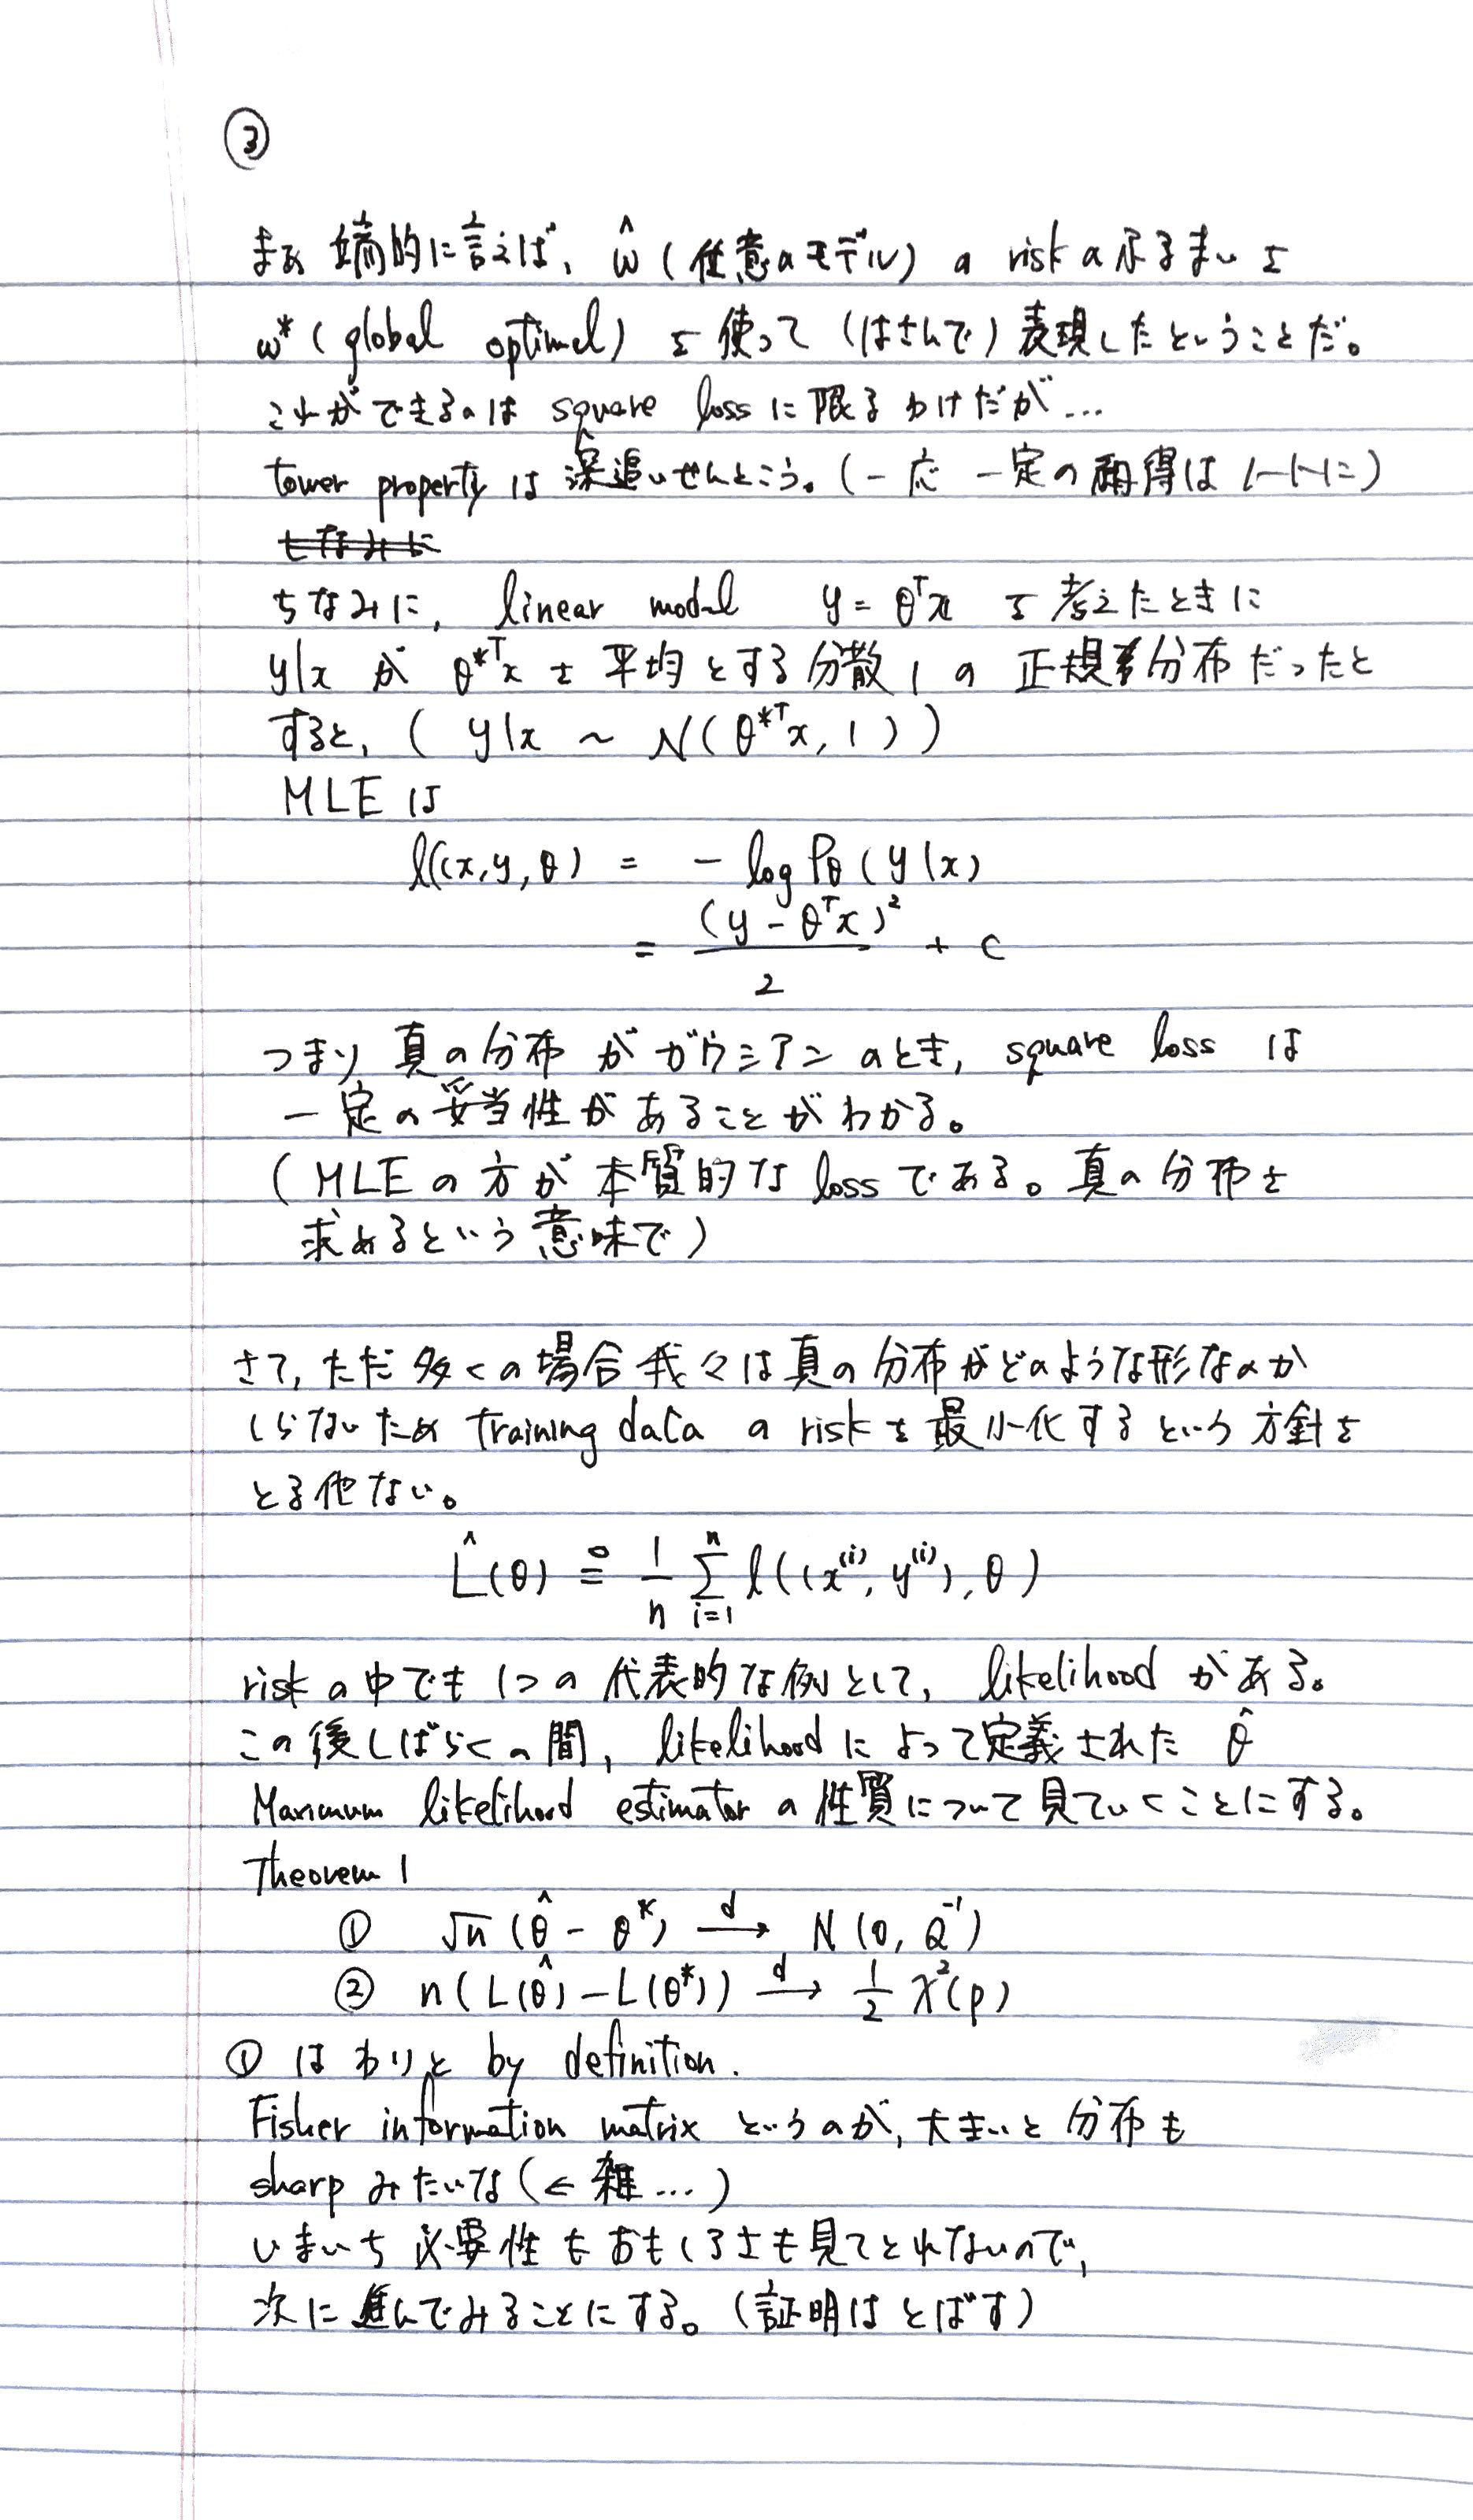 ③
まぁ 端的に言えば、 ŵ (任意のモデル) の risk の ふるまいを
w* (global optimal) を使って (はさんで) 表現したということだ。
これができるのは square loss に限るわけだが...
tower property は深追いせんとこう。(一応 一定の納得は
ちなみに
ちなみに, linear model y = θᵀx を考えたときに
y|x が θ*ᵀx を平均とする分散 1 の 正規分布だったと
すると, ( y|x ~ N(θ*ᵀx, 1) )
MLE は
l((x,y,θ) = - log Pθ (y|x)
= (y - θᵀx)² / 2 + C
つまり 真の分布 が ガウシアン のとき, square loss は
一定の妥当性があることがわかる。
(MLE の方が本質的な loss である。真の分布を
求めるという意味で)
さて, ただ多くの場合我々は真の分布がどのような形なのか
しらないため training data の risk を最小化するという方針を
とる他ない。
L̂(θ) ≗ 1/n Σⁿᵢ₌₁ l((x⁽ⁱ⁾, y⁽ⁱ⁾), θ)
risk の中でも 1つの代表的な例として, likelihood がある。
この後しばらくの間, likelihood によって定義された θ̂
Maximum likelihood estimator の性質について見ていくことにする。
Theorem 1
① √n (θ̂ - θ*) →ᵈ N(0, Q⁻¹)
② n(L(θ̂) - L(θ*)) →ᵈ 1/2 χ²(p)
① は わりと by definition.
Fisher information matrix というのが, 大きいと 分布も
sharp みたいな (← 雑...)
いまいち 必要性もおもしろさも見てとれないので,
次に進んでみることにする。(証明はとばす)